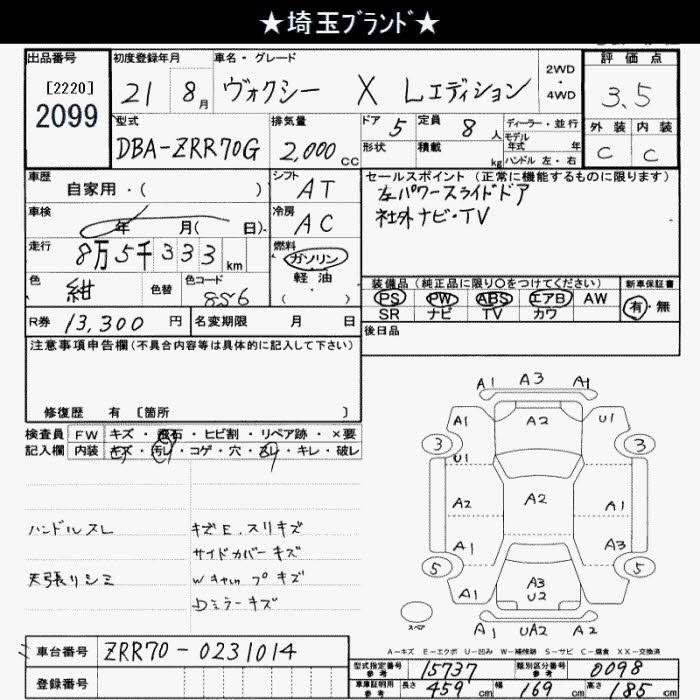 ★埼玉ブランド★
出品番号 初度登録年月 車名・グレード 2WD・4WD 評価点
[2220] 2099 21 8月 ヴォクシー X Lエディション 3.5
型式 排気量 ドア 5 定員 8人 ディーラー・並行 外装 内装
DBA-ZRR70G 2,000cc 形状 積載 kg モデル年式 年 ハンドル 左・右 C C
車歴 自家用・( ) シフト AT セールスポイント(正常に機能するものに限ります)
左パワースライドドア
車検 年 月( 日) 冷房 AC 社外ナビ・TV
走行 8万5千333km 燃料 ガソリン・軽油・( )
色 紺 色替 色コード 8S6 装備品(純正品に限り〇をつけてください) 新車保証書
PS PW ABS エアB AW 有・無
SR ナビ TV カワ
R券 13,300円 名変期限 月 日 後日品
注意事項申告欄(不具合内容等は具体的に記入して下さい)
修復歴 有 [箇所 ]
検査員記入欄 FW キズ・飛石・ヒビ割・リペア跡・×要
内装 キズ・汚レ・コゲ・穴・スレ・キレ・破レ
ハンドルスレ キズE.スリキズ
サイドカバーキズ
天張リシミ Wキャップキズ
Dミラーキズ
A1 A3 A1
A1 A2 U1
3 3
U1
A2 A2 A1
A1 A3
5 5
A1 A3 U2 A1
スペア A1 UA2 A2
A-キズ E-エクボ U-凹み W-補修跡 S-サビ C-腐食 XX-交換済
車台番号 ZRR70-0231014
登録番号
型式指定番号 参考 15737 類別区分番号 参考 0098
車庫証明用 参考 長さ 459cm 幅 169cm 高さ 185cm